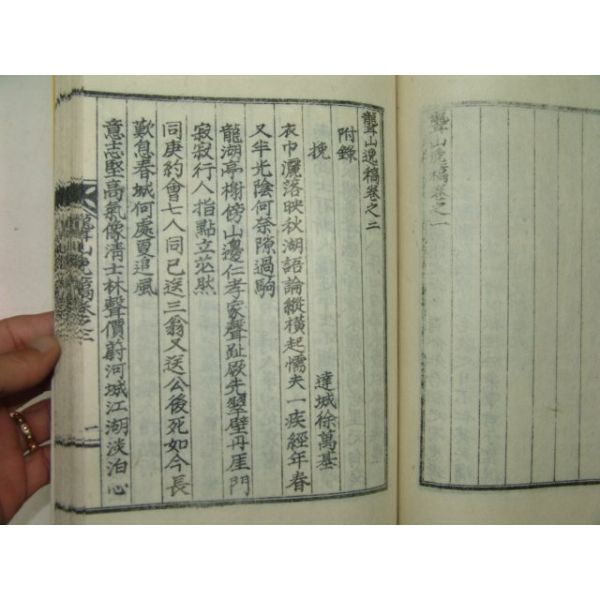 聾山逸稿卷之一
聾山逸稿卷之二
附錄
挽 達城徐萬基
衣巾灑落映秋湖語論縱橫起懦夫一疾經年春
又半光陰何奈隙過駒
龍湖亭榭傍山邊仁孝家聲趾厥先翠壁丹厓門
寂寂行人指點立茫然
同庚約會七人同已送三翁又送公後死如今長
歎息春城何處夏追風
意志堅高氣像淸士林聲價蔚河城江湖淡泊心
聾山逸稿卷之二 一